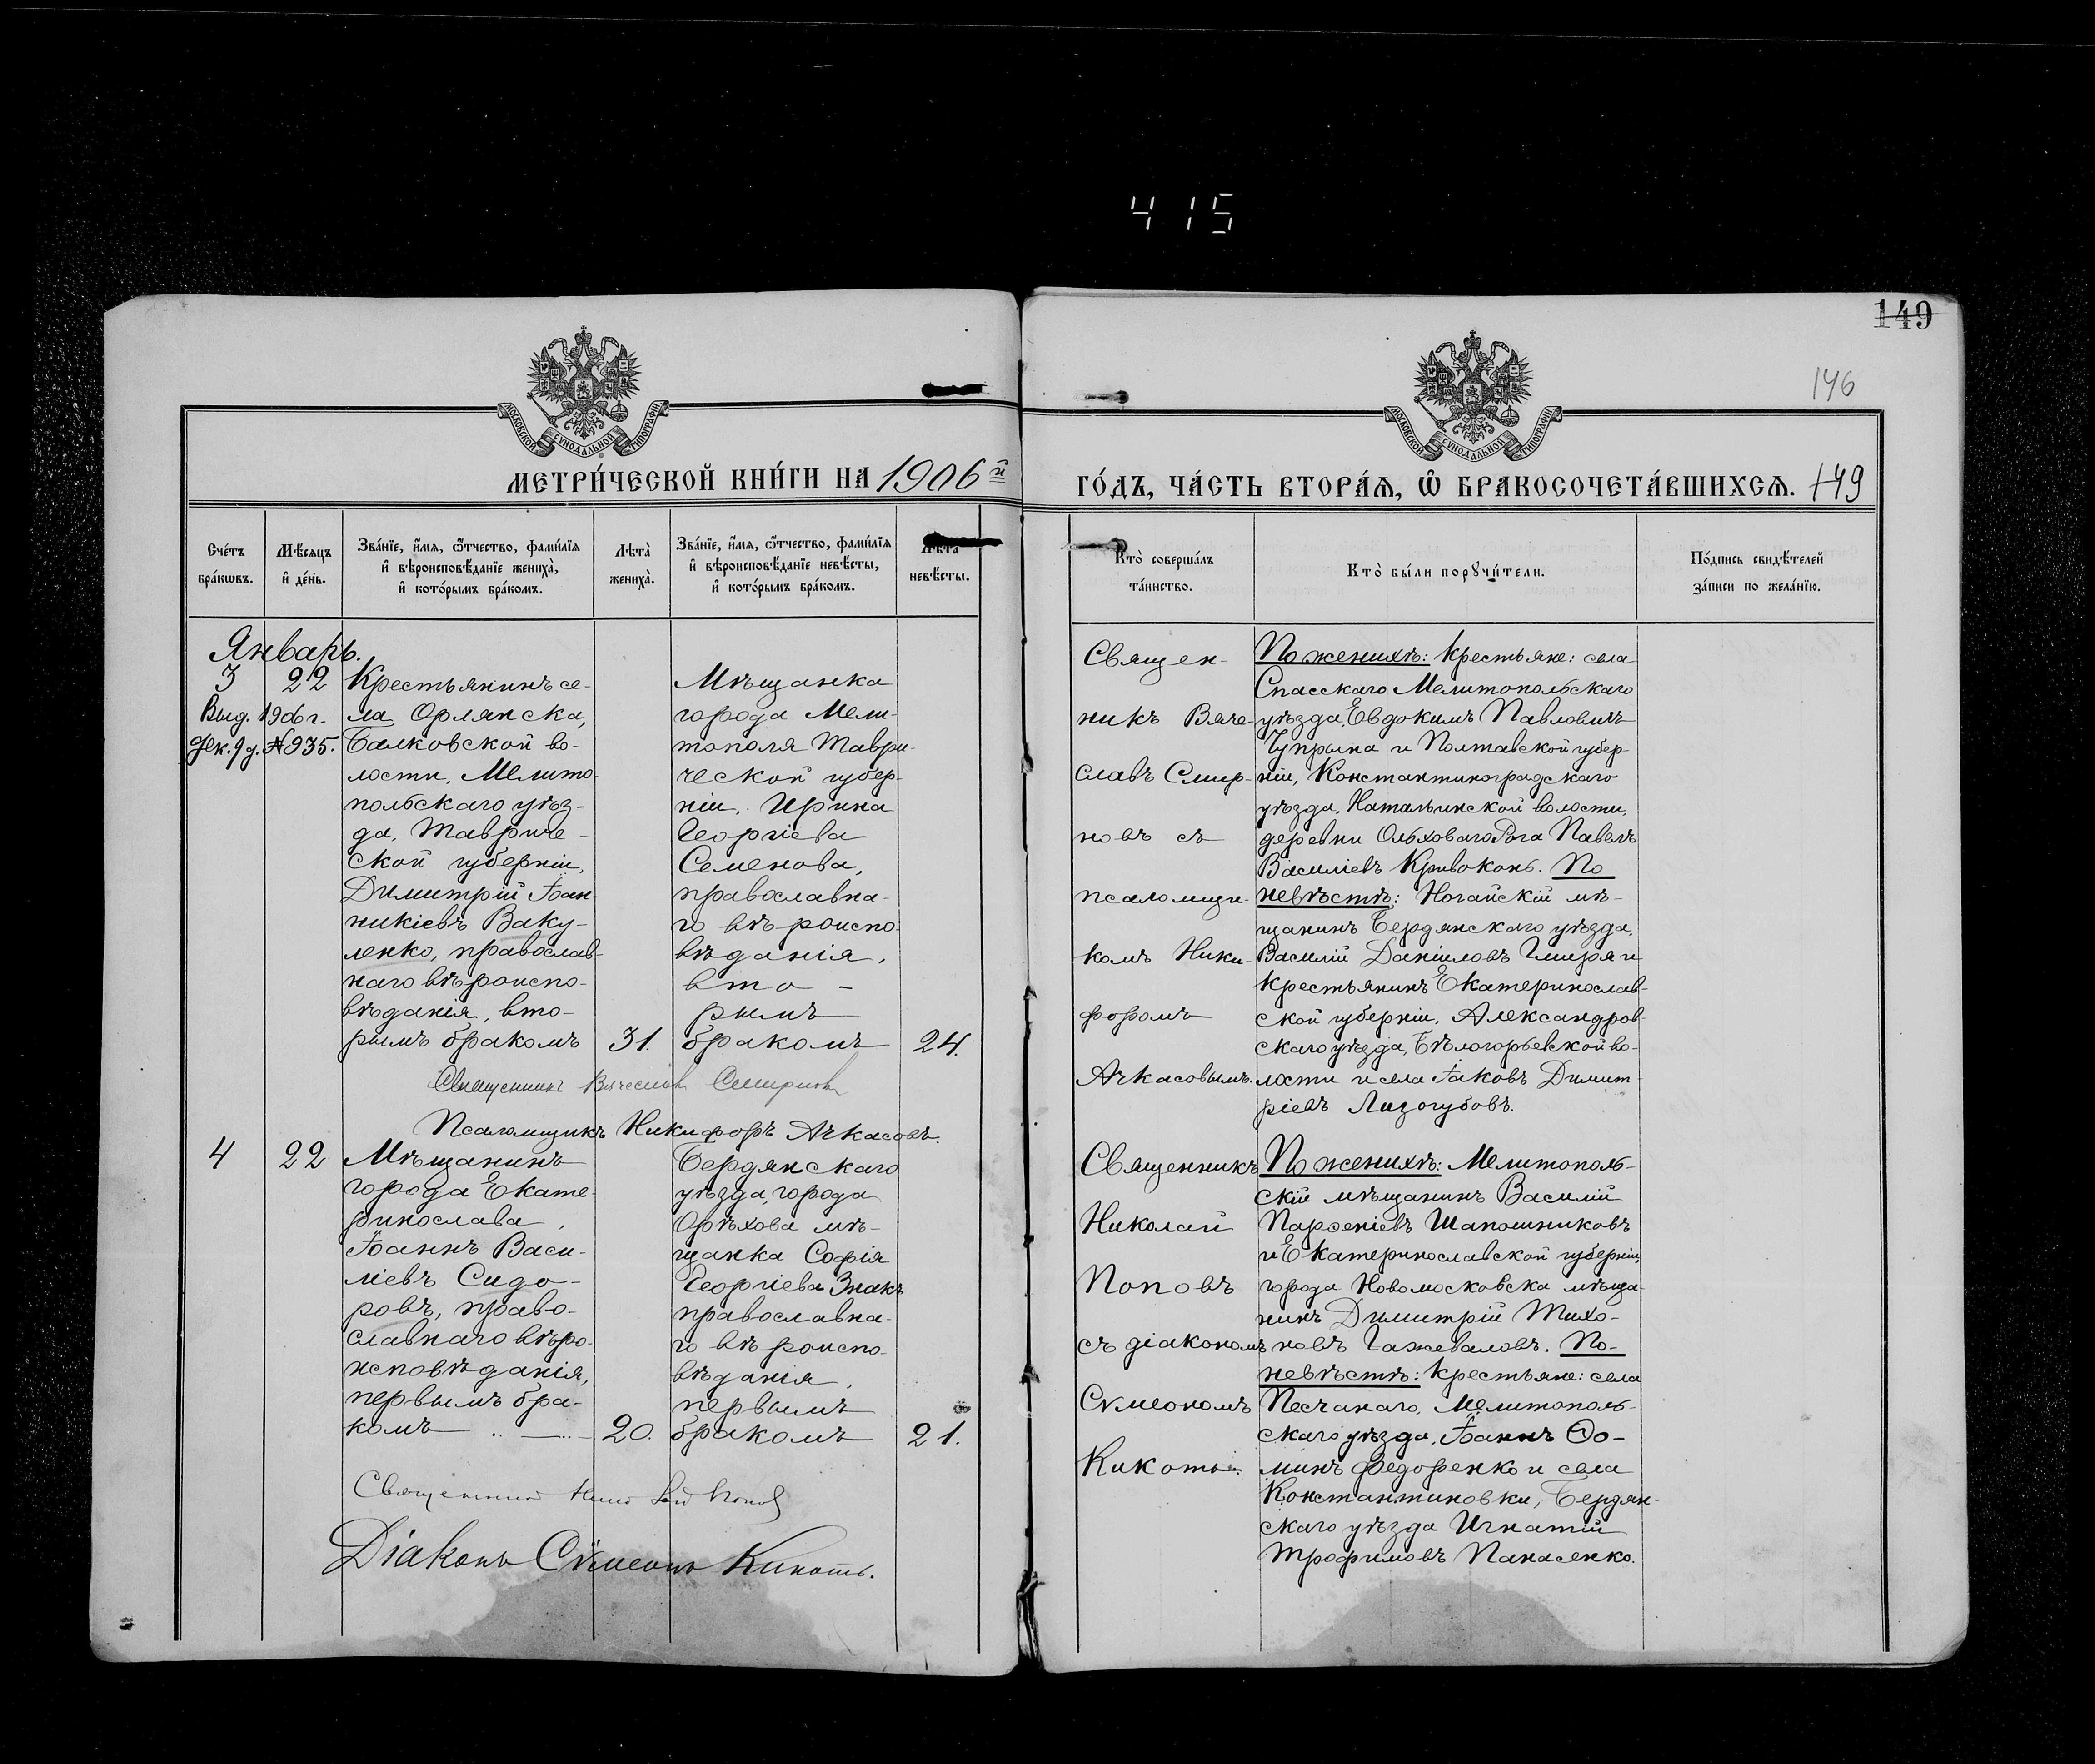 415
149
146
МОСКОВСКОЙ СѴНОДАЛЬНОЙ ТИПОГРАФІИ
МОСКОВСКОЙ СѴНОДАЛЬНОЙ ТИПОГРАФІИ
МЕТРИ́ЧЕСКОЙ КНИ́ГИ НА 1906й
ГО́ДЪ, ЧА́СТЬ ВТОРА́Ѧ, Ѡ҆ БРАКОСОЧЕТА́ВШИХСѦ. 149
Сче́тъ бра́кѡвъ.
Мѣ́сяцъ и҆ де́нь.
Зва́нїе, и҆́мѧ, ѻ҆́тчество, фами́лїѧ
и҆ вѣроисповѣ́данїе жениха̀,
и҆ кото́рымъ бра́комъ.
Лѣта̀ жениха̀.
Зва́нїе, и҆́мѧ, ѻ҆́тчество, фами́лїѧ
и҆ вѣроисповѣ́данїе невѣ́сты,
и҆ кото́рымъ бра́комъ.
Лѣта̀ невѣ́сты.
Кто̀ соверша́лъ та́инство.
Кто̀ бы́ли порꙋчи́тели.
По́дпись свидѣ́телей за́писи по жела́нїю.
Январь.
3
22
Выд. 1906 г.
Дек. 9 д. № 935.
Крестьянинъ се-
ла Орлянска,
Балковской во-
лости, Мелито-
польскаго уѣз-
да, Тавриче-
ской губерніи,
Димитрій Іоан-
никіевъ Ваку-
ленко, православ-
наго вѣроиспо-
вѣданія, вто-
рымъ бракомъ
31.
Мѣщанка
города Мели-
тополя Таври-
ческой губер-
ніи, Ирина
Георгіева
Семенова,
православна-
го вѣроиспо-
вѣданія,
вто-
рымъ
бракомъ
24.
Священникъ Вячеславъ Смирновъ
Псаломщикъ Никифоръ Ачкасовъ.
Священ-
никъ Вяче-
славъ Смир-
новъ съ
псаломщи-
комъ Ники-
форомъ
Ачкасовымъ.
По женихѣ: крестьяне: села
Спасскаго Мелитопольскаго
уѣзда, Евдокимъ Павловичъ
Чупрына и Полтавской губер-
ніи, Константиноградскаго
уѣзда, Натальинской волости,
деревни Ольховаго Рога Павелъ
Василіевъ Кривоконь. По
невѣстѣ: Ногайскій мѣ-
щанинъ Бердянскаго уѣзда,
Василій Даніиловъ Гмыря и
крестьянинъ Екатеринослав-
ской губерніи, Александров-
скаго уѣзда, Бѣлогорьевской во-
лости и села Іаковъ Димит-
ріевъ Лизогубовъ.
4
22
Мѣщанинъ
города Екате-
ринослава,
Іоаннъ Васи-
ліевъ Сидо-
ровъ, право-
славнаго вѣро-
исповѣданія,
первымъ бра-
комъ
20.
Бердянскаго
уѣзда, города
Орѣхова мѣ-
щанка Софія
Георгіева Знакъ
православна-
го вѣроиспо-
вѣданія,
первымъ
бракомъ
21.
Діаконъ Сѵмеонъ Кикоть.
Священникъ
Николай
Поповъ
съ діакономъ
Сѵмеономъ
Кикоть.
По женихѣ: Мелитополь-
скій мѣщанинъ Василій
Парѳеніевъ Шапошниковъ
и Екатеринославской губерніи,
города Новомосковска мѣща-
нинъ Димитрій Тихо-
новъ Гажеваловъ. По
невѣстѣ: крестьяне: села
Песчанаго, Мелитополь-
скаго уѣзда, Іоаннъ Ѳо-
минъ Федоренко и села
Константиновки, Бердян-
скаго уѣзда Игнатій
Трофимовъ Панасенко.